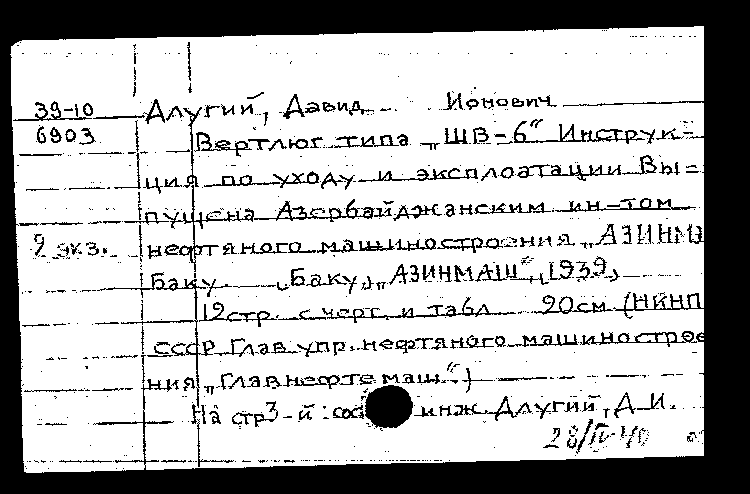 39-10 Длугий, Давид Ионович
6903 Вертлюг типа „ШВ-6“ Инструк=
ция по уходу и эксплоатации Вы=
пущена Азербайджанским ин-том
2 экз. нефтяного машиностроения „АЗИНМ
Баку. Баку, „АЗИНМАШ“, 1939,
12 стр. с черт. и табл 20см (НКНП
СССР Глав. упр. нефтяного машинострое
ния „Главнефтемаш“.)
На стр 3-й: инж. Длугий, Д. И.
28/IV-40